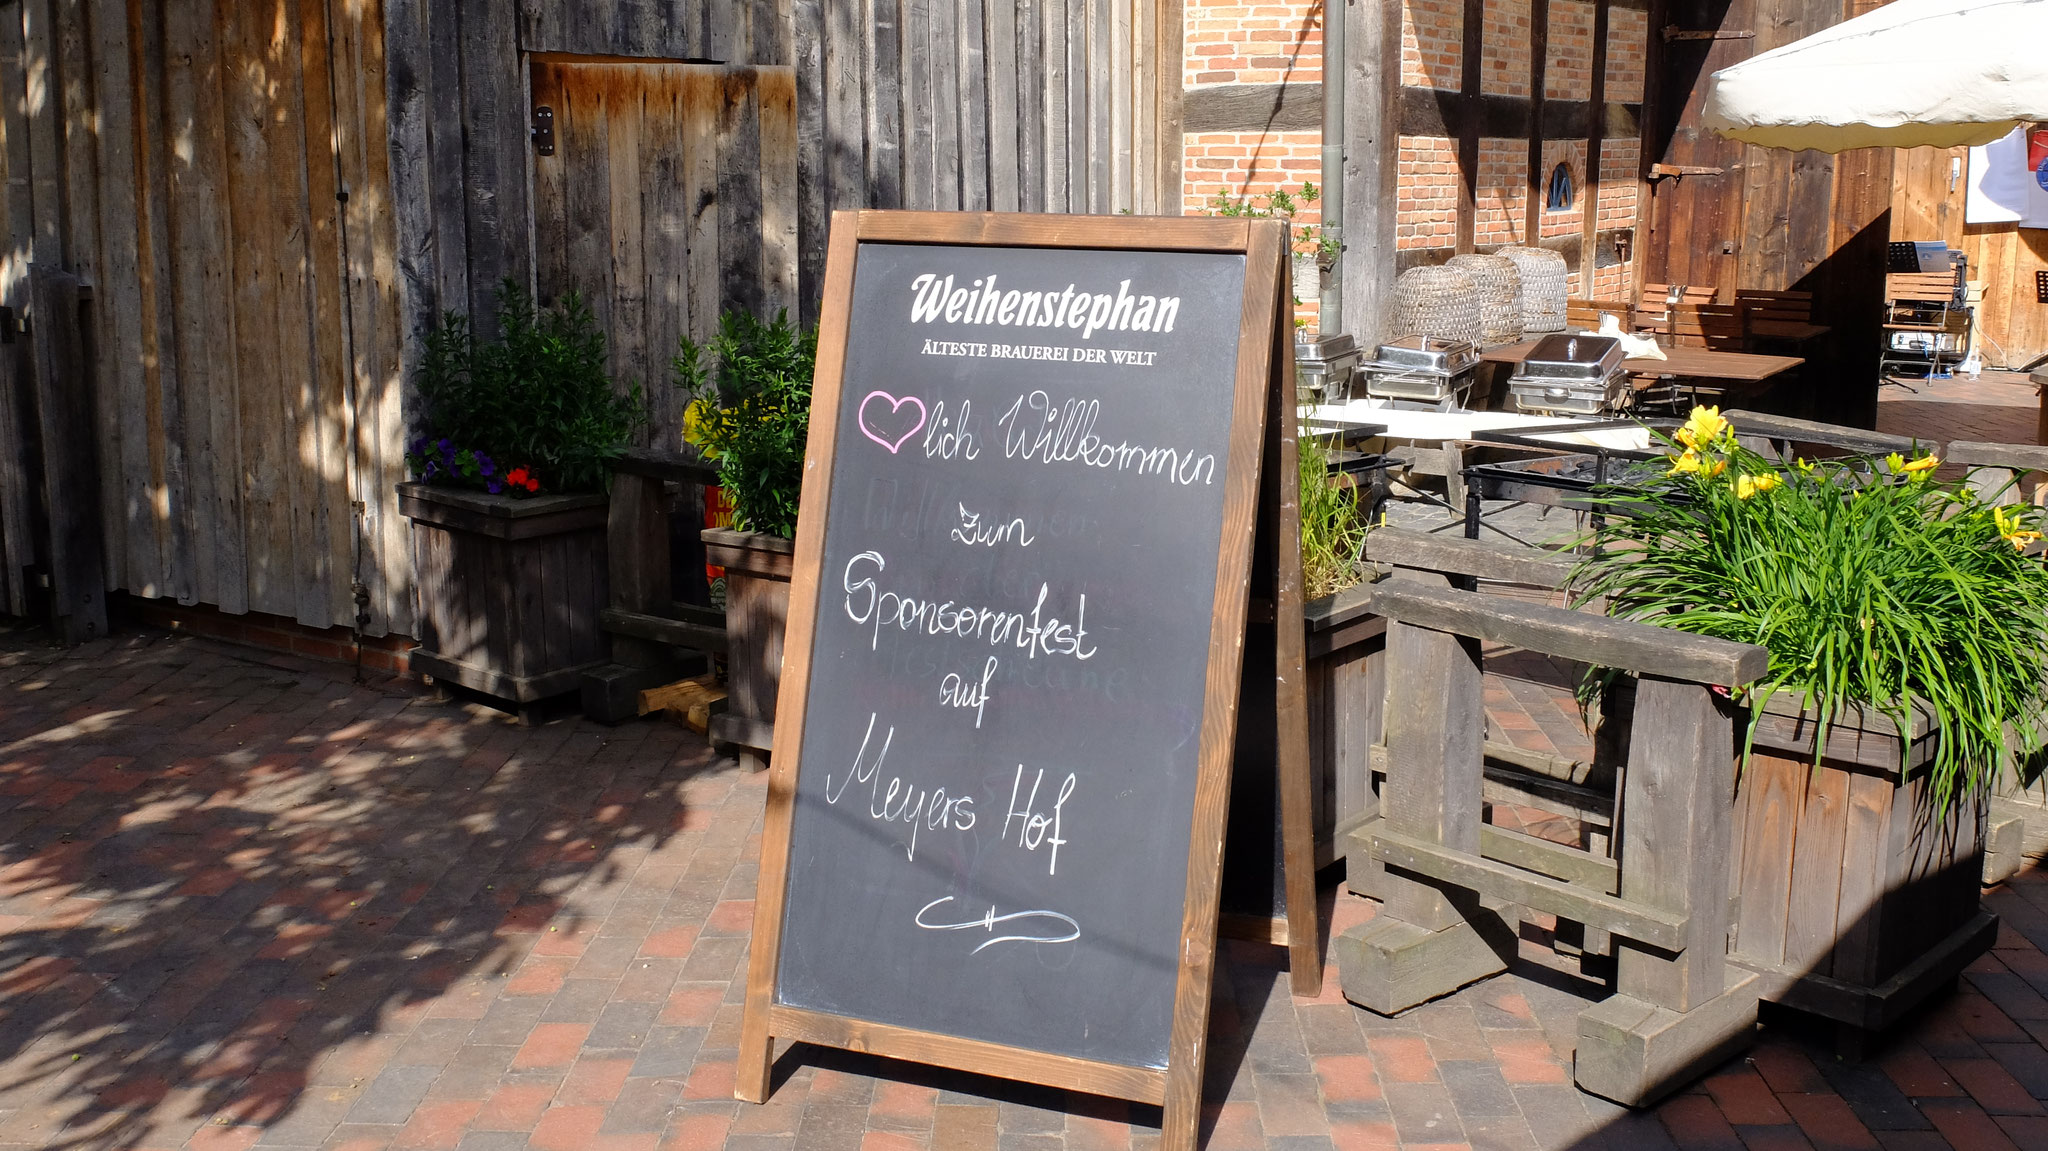 Weihenstephan
ÄLTESTE BRAUEREI DER WELT
lich Willkommen
zum
Sponsorenfest
auf
Meyers Hof